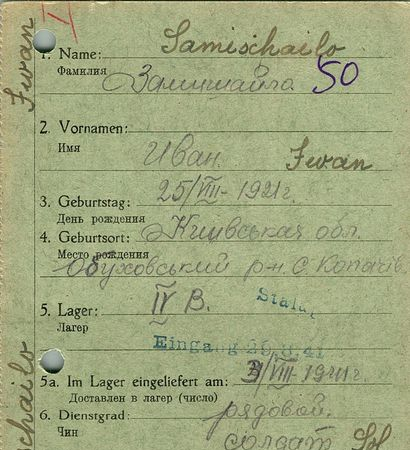 1. Name: Samischailo
Фамилия Замишайло 50
2. Vornamen:
Имя Иван Iwan
3. Geburtstag: 25/VIII-1921г.
День рождения
4. Geburtsort: Київская обл.
Место рождения
Обуховський р-н. С. Копачів
5. Lager: IV B. Stalag
Лагер
Eingang 29.8.41
5a. Im Lager eingeliefert am: /VIII-1941г.
Доставлен в лагер (число)
6. Dienstgrad: рядовой.
Чин солдат
Iwan
schailo